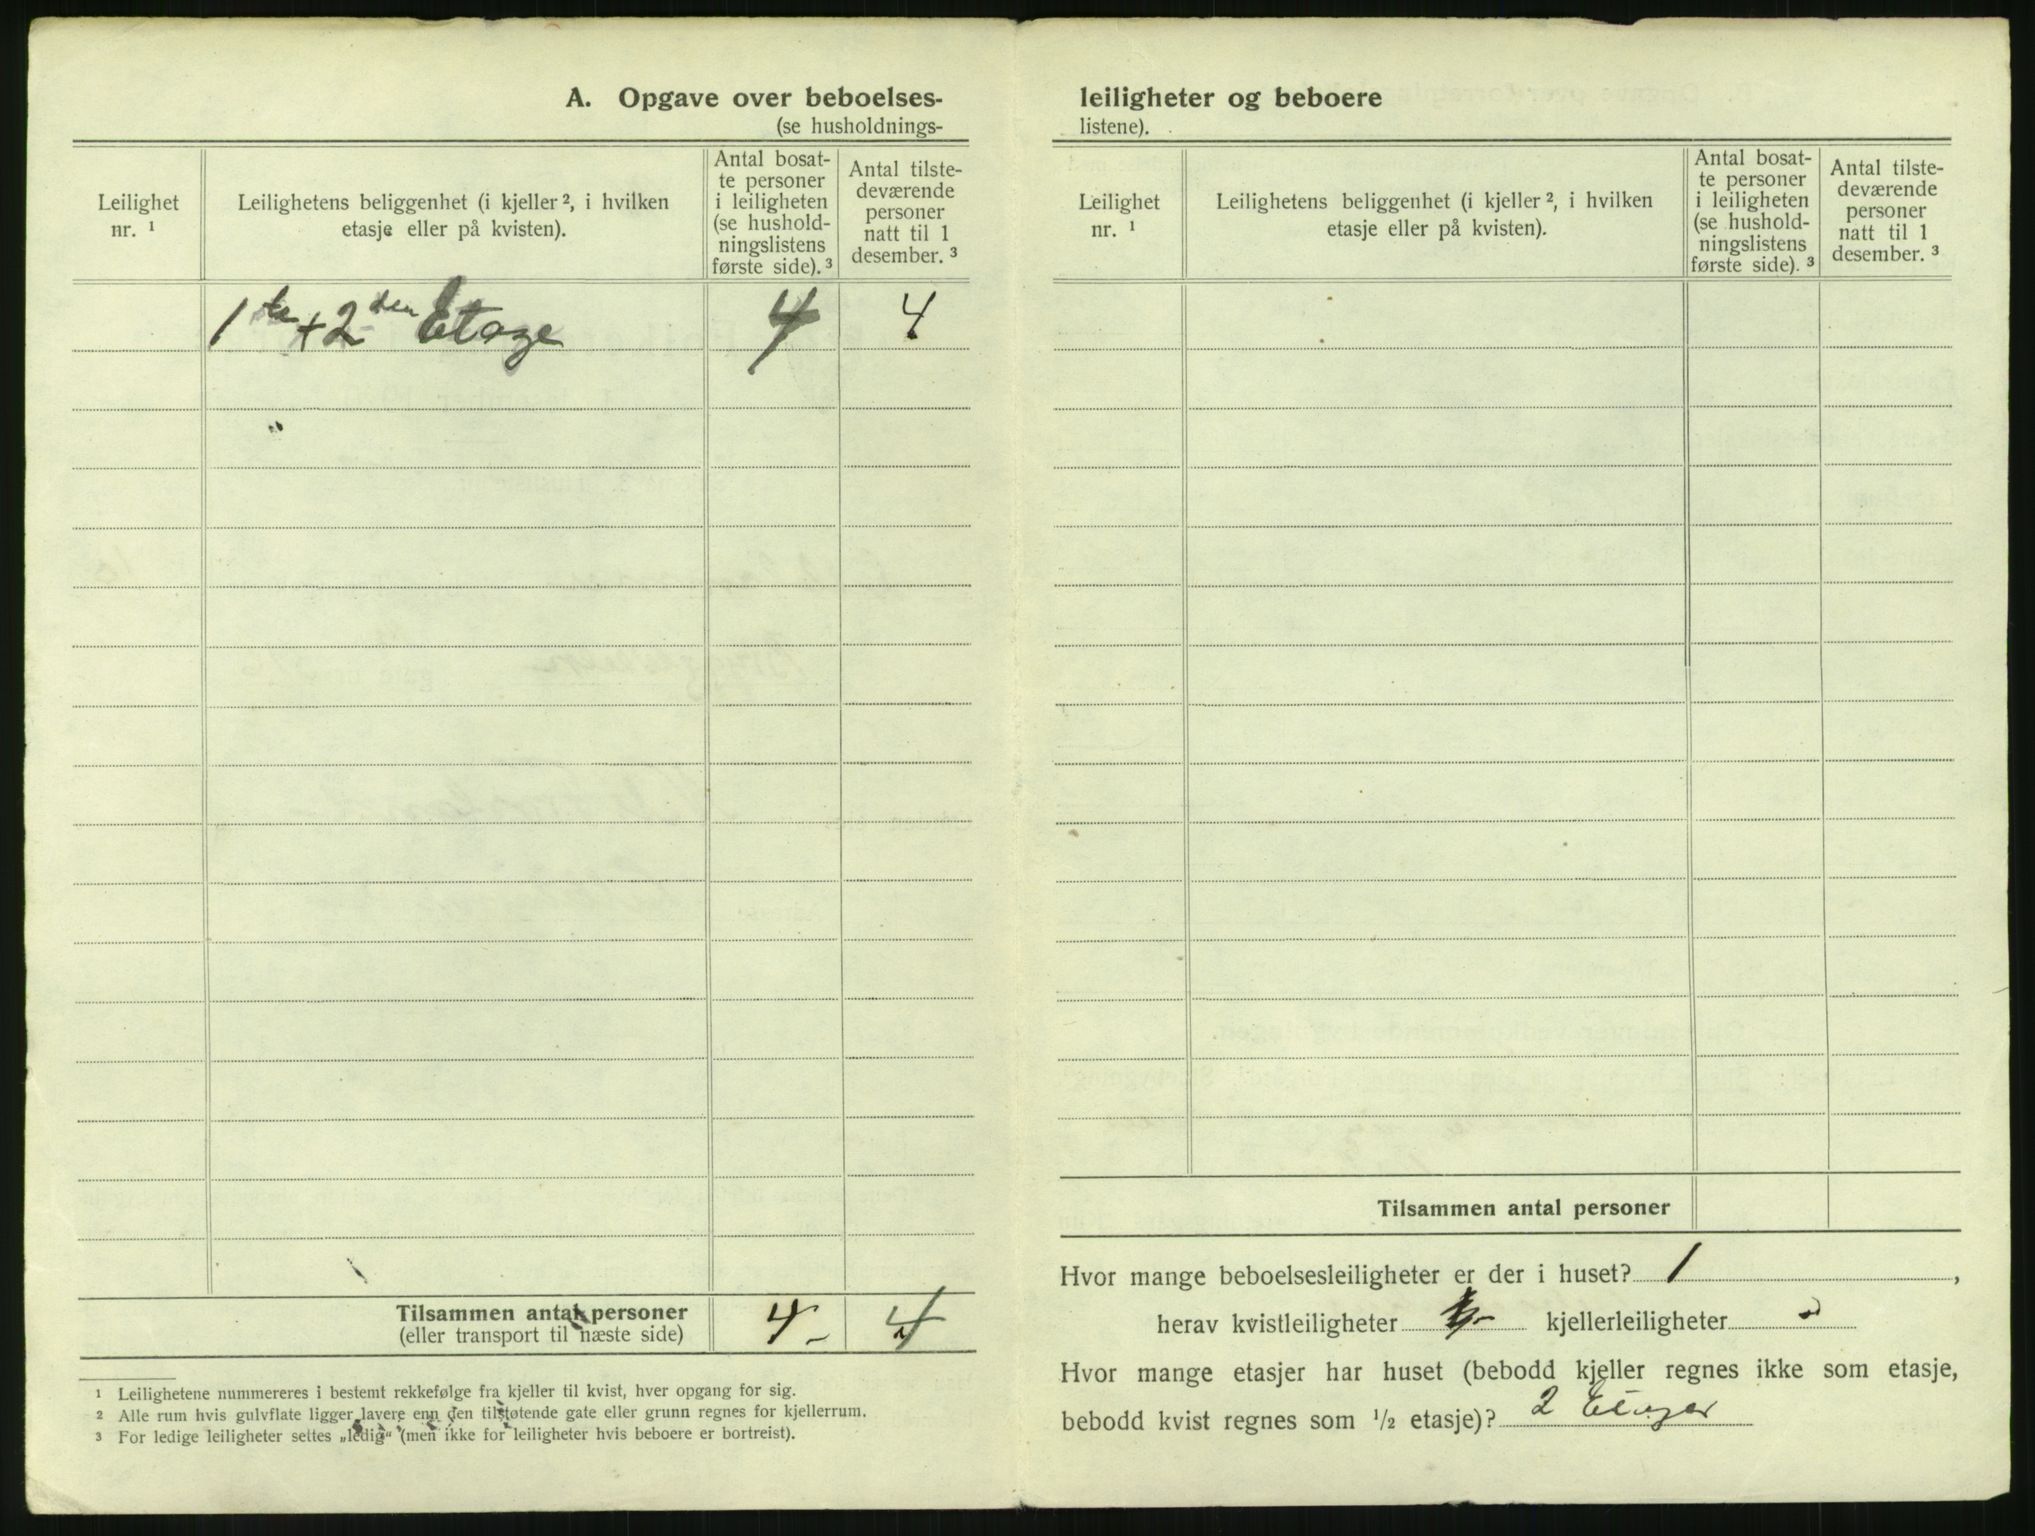 A. Opgave over beboelses-
(se husholdnings-
Leilighet
nr. 1
Leilighetens beliggenhet (i kjeller 2, i hvilken
etasje eller på kvisten).
Antal bosat-
te personer
i leiligheten
(se hushold-
ningslistens
første side). 3
Antal tilste-
deværende
personer
natt til 1
desember. 3
1ste + 2den Etage 4 4
Tilsammen antal personer
(eller transport til næste side)
4- 4
1 Leilighetene nummereres i bestemt rekkefølge fra kjeller til kvist, hver opgang for sig.
2 Alle rum hvis gulvflate ligger lavere enn den tilstøtende gate eller grunn regnes for kjellerrum.
3 For ledige leiligheter settes „ledig“ (men ikke for leiligheter hvis beboere er bortreist).
leiligheter og beboere
listene).
Leilighet
nr. 1
Leilighetens beliggenhet (i kjeller 2, i hvilken
etasje eller på kvisten).
Antal bosat-
te personer
i leiligheten
(se hushold-
ningslistens
første side). 3
Antal tilste-
deværende
personer
natt til 1
desember. 3
Tilsammen antal personer
Hvor mange beboelsesleiligheter er der i huset? 1,
herav kvistleiligheter kjellerleiligheter
Hvor mange etasjer har huset (bebodd kjeller regnes ikke som etasje,
bebodd kvist regnes som 1/2 etasje)? 2 Etager